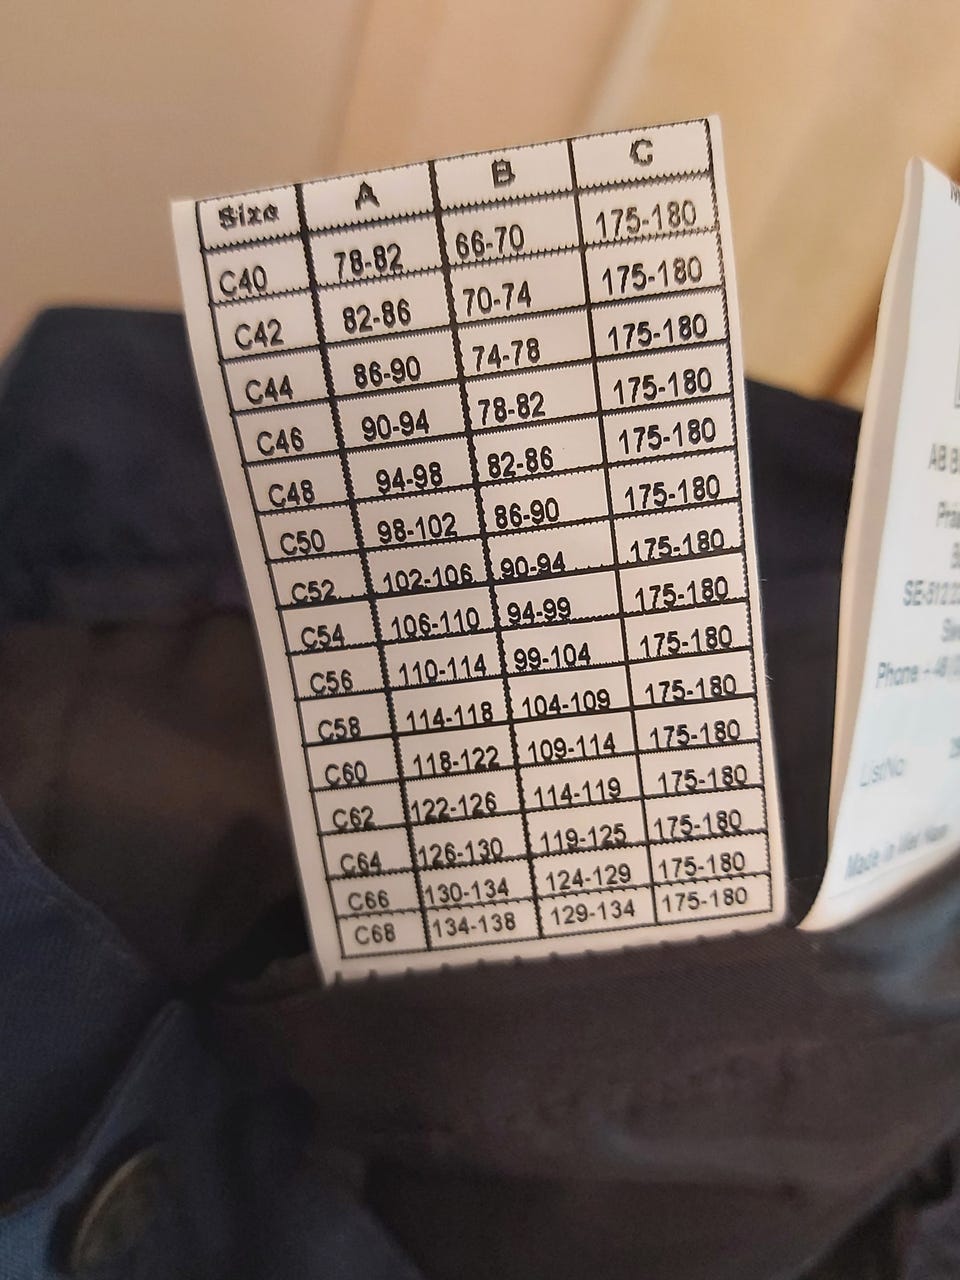 Size A B C
C40 78-82 66-70 175-180
C42 82-86 70-74 175-180
C44 86-90 74-78 175-180
C46 90-94 78-82 175-180
C48 94-98 82-86 175-180
C50 98-102 86-90 175-180
C52 102-106 90-94 175-180
C54 106-110 94-99 175-180
C56 110-114 99-104 175-180
C58 114-118 104-109 175-180
C60 118-122 109-114 175-180
C62 122-126 114-119 175-180
C64 126-130 119-125 175-180
C66 130-134 124-129 175-180
C68 134-138 129-134 175-180
AB
SE-512
Phone
ListNo
Made in Viet Nam